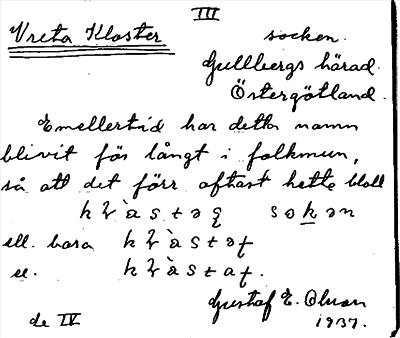 III
Vreta Kloster socken.
Gullbergs härad.
Östergötland.
Emellertid har detta namn
blivit för långt i folkmun,
så att det förr oftast hette bloll
sokən
ell. bara
el.
Gustaf E. Olsson
de IV 1937.